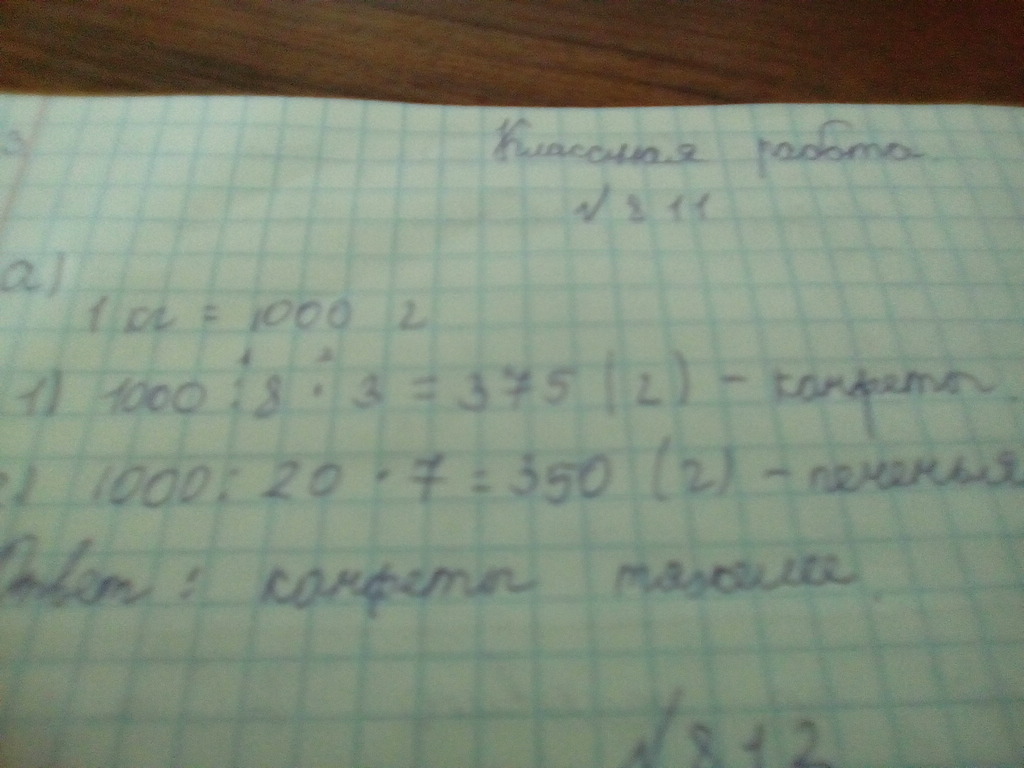 Классная работа
№ 811
а)
1 кг = 1000 г
1) 1000 : 8 · 3 = 375 (г) - конфеты.
2) 1000 : 20 · 7 = 350 (г) - печенья
Ответ : конфеты тяжелее.
№ 812